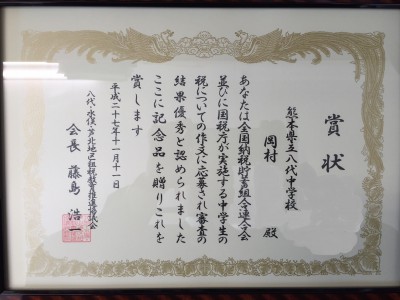 賞状
熊本県立八代中学校
岡村 殿
あなたは全国納税貯蓄組合連合会
並びに国税庁が実施する中学生の
税についての作文に応募され審査の
結果優秀と認められました
ここに記念品を贈りこれを
賞します
平成二十七年十一月十一日
八代・水俣・芦北地区租税教育推進協議会
会長 藤島 浩一